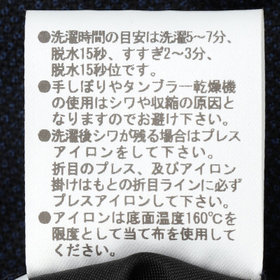 ●洗濯時間の目安は洗濯5〜7分、
脱水15秒、すすぎ2〜3分、
脱水15秒位です。
●手しぼりやタンブラー乾燥機
の使用はシワや収縮の原因と
なりますのでお避け下さい。
●洗濯後シワが残る場合はプレス
アイロンをして下さい。
折目のプレス、及びアイロン
掛けはもとの折目ラインに必ず
プレスアイロンして下さい。
●アイロンは底面温度160℃を
限度として当て布を使用して
ください。